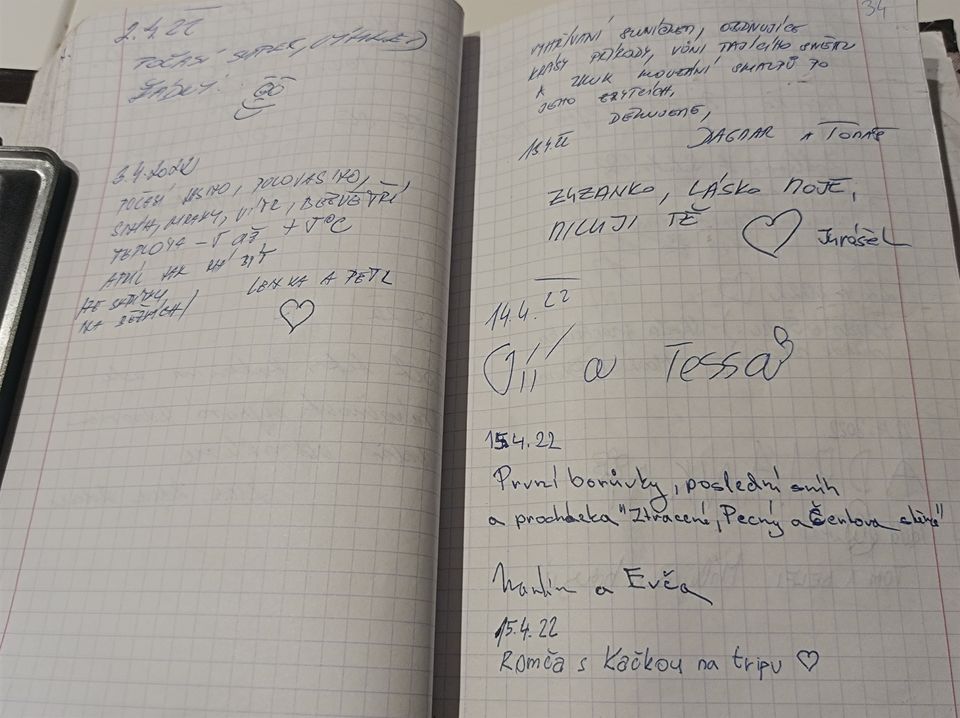 2.4.22
POČASÍ SUPER, VÝHLED
ŽÁDNÝ!
3.4.2022
POČASÍ JASNO, POLOJASNO,
SNÍH, MRAKY, VÍTR, BEZVĚTŘÍ,
TEPLOTA -5 AŽ +5°C
APRÍL JAK MÁ BÝT
NA BĚŽKÁCH
LENKA A PETR
34
VYHŘÍVÁNÍ SLUNÍČKEM, OBDIVUJÍCE
KRÁSY PŘÍRODY, VŮNI TAJÍCÍHO SNĚHU
A ZVUK
JEHO
DĚKUJEME,
13.4.22
DAGMAR A TOMÁŠ
ZUZANKO, LÁSKO MOJE,
MILUJI TĚ
Jurášek
14.4.22
Jíí a Tessa
15.4.22
První borůvky, poslední sníh
a procházka "Ztracené, Pecný a Čertova stěně"
Martin a Evča
15.4.22
Romča s Kačkou na tripu